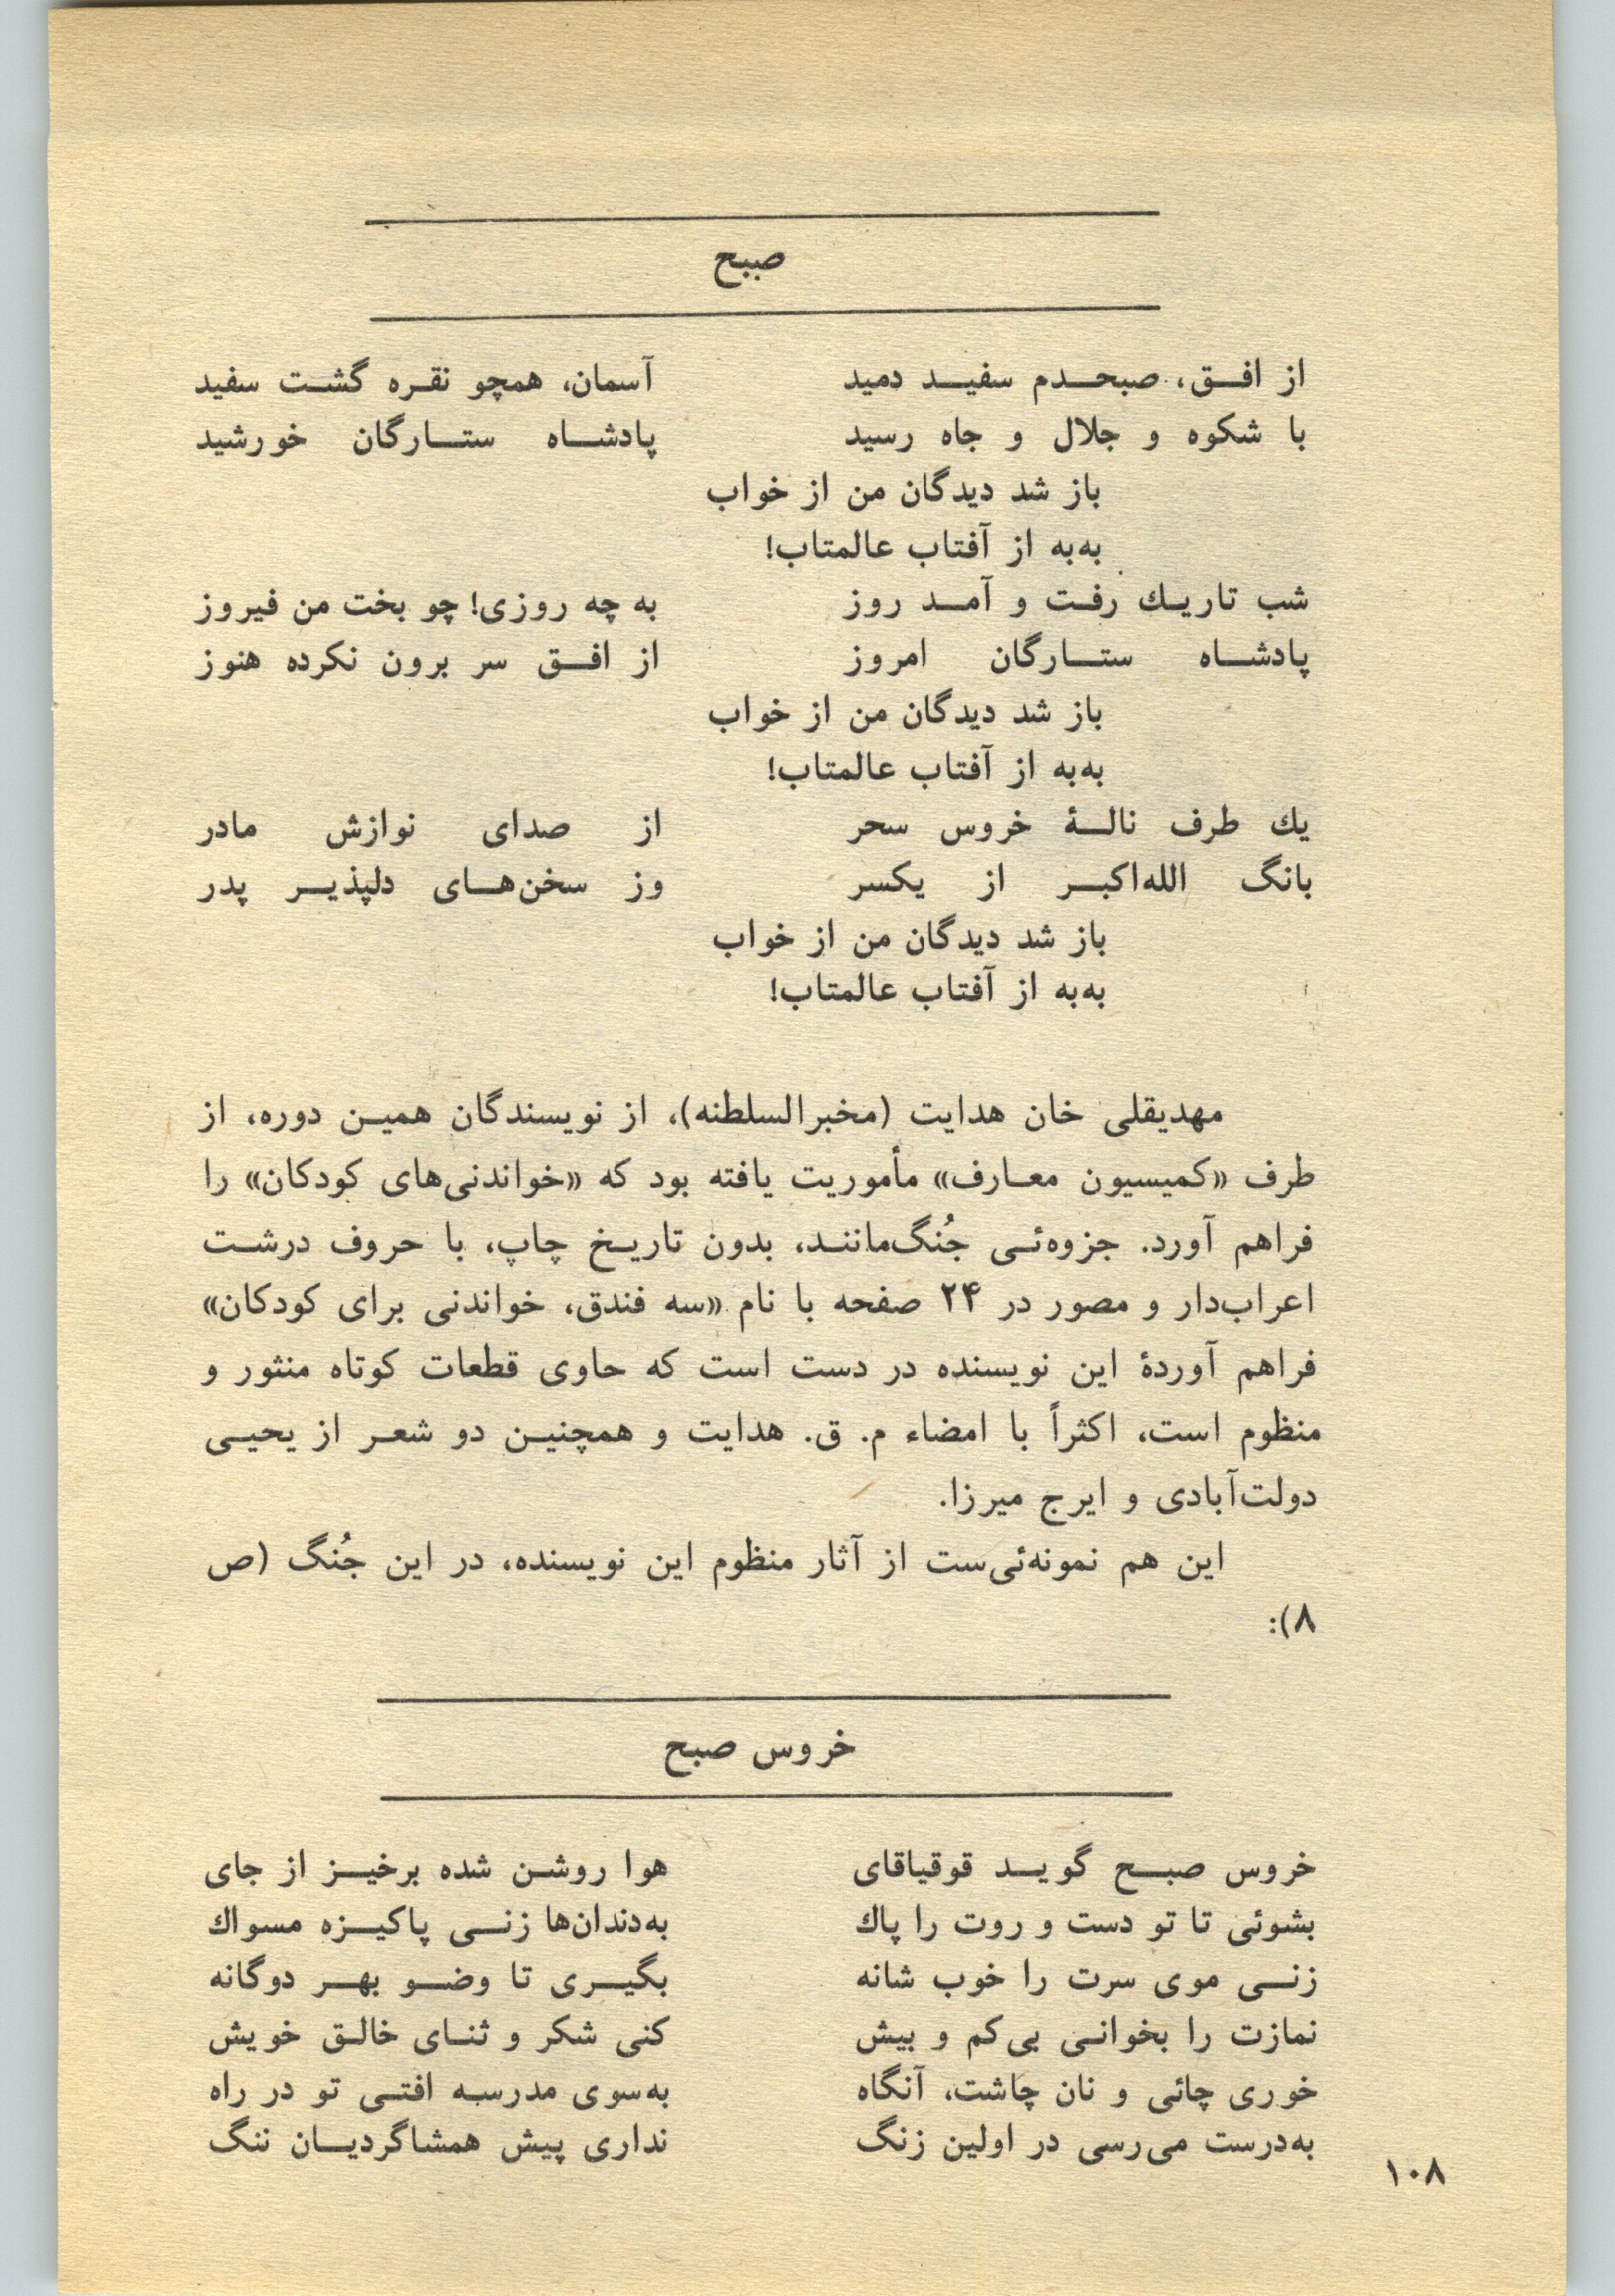 صبح
از افق، صبحدم سفید دمید آسمان، همچو نقره گشت سفید
با شکوه و جلال و جاه رسید پادشاه ستارگان خورشید
باز شد دیدگان من از خواب
به‌به از آفتاب عالمتاب!
شب تاریك رفت و آمد روز به چه روزی! چو بخت من فیروز
پادشاه ستارگان امروز از افق سر برون نکرده هنوز
باز شد دیدگان من از خواب
به‌به از آفتاب عالمتاب!
یك طرف نالهٔ خروس سحر از صدای نوازش مادر
بانگ الله‌اکبر از یکسر وز سخن‌های دلپذیر پدر
باز شد دیدگان من از خواب
به‌به از آفتاب عالمتاب!
مهدیقلی خان هدایت (مخبرالسلطنه)، از نویسندگان همین دوره، از
طرف «کمیسیون معارف» مأموریت یافته بود که «خواندنی‌های کودکان» را
فراهم آورد. جزوه‌ئی جُنگ‌مانند، بدون تاریخ چاپ، با حروف درشت
اعراب‌دار و مصور در ۲۴ صفحه با نام «سه فندق، خواندنی برای کودکان»
فراهم آوردهٔ این نویسنده در دست است که حاوی قطعات کوتاه منثور و
منظوم است، اکثراً با امضاء م. ق. هدایت و همچنین دو شعر از یحیی
دولت‌آبادی و ایرج میرزا.
این هم نمونه‌ئی‌ست از آثار منظوم این نویسنده، در این جُنگ (ص
۸):
خروس صبح
خروس صبح گوید قوقیاقای هوا روشن شده برخیز از جای
بشوئی تا تو دست و روت را پاك به‌دندان‌ها زنی پاکیزه مسواك
زنی موی سرت را خوب شانه بگیری تا وضو بهر دوگانه
نمازت را بخوانی بی‌کم و بیش کنی شکر و ثنای خالق خویش
خوری چائی و نان چاشت، آنگاه به‌سوی مدرسه افتی تو در راه
به‌درست می‌رسی در اولین زنگ نداری پیش همشاگردیان ننگ
۱۰۸